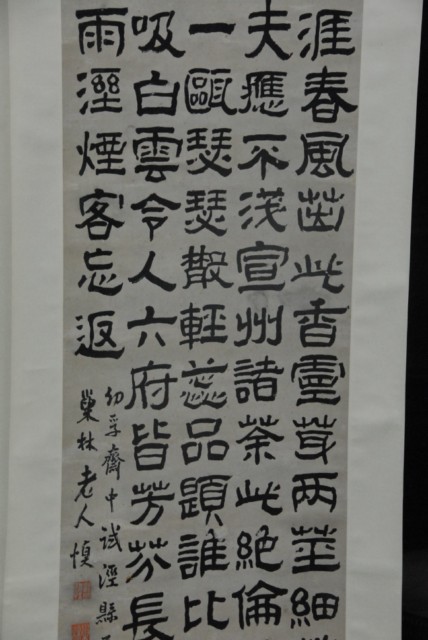 涯春風茁此香靈芽兩莖細
夫應不淺宣州諸茶此絕倫
一甌瑟瑟散輕蕊品題誰比
吸白雲令人六府皆芳芬長
雨溼煙客忘返
幼孚齋中試涇縣
巢林老人慎